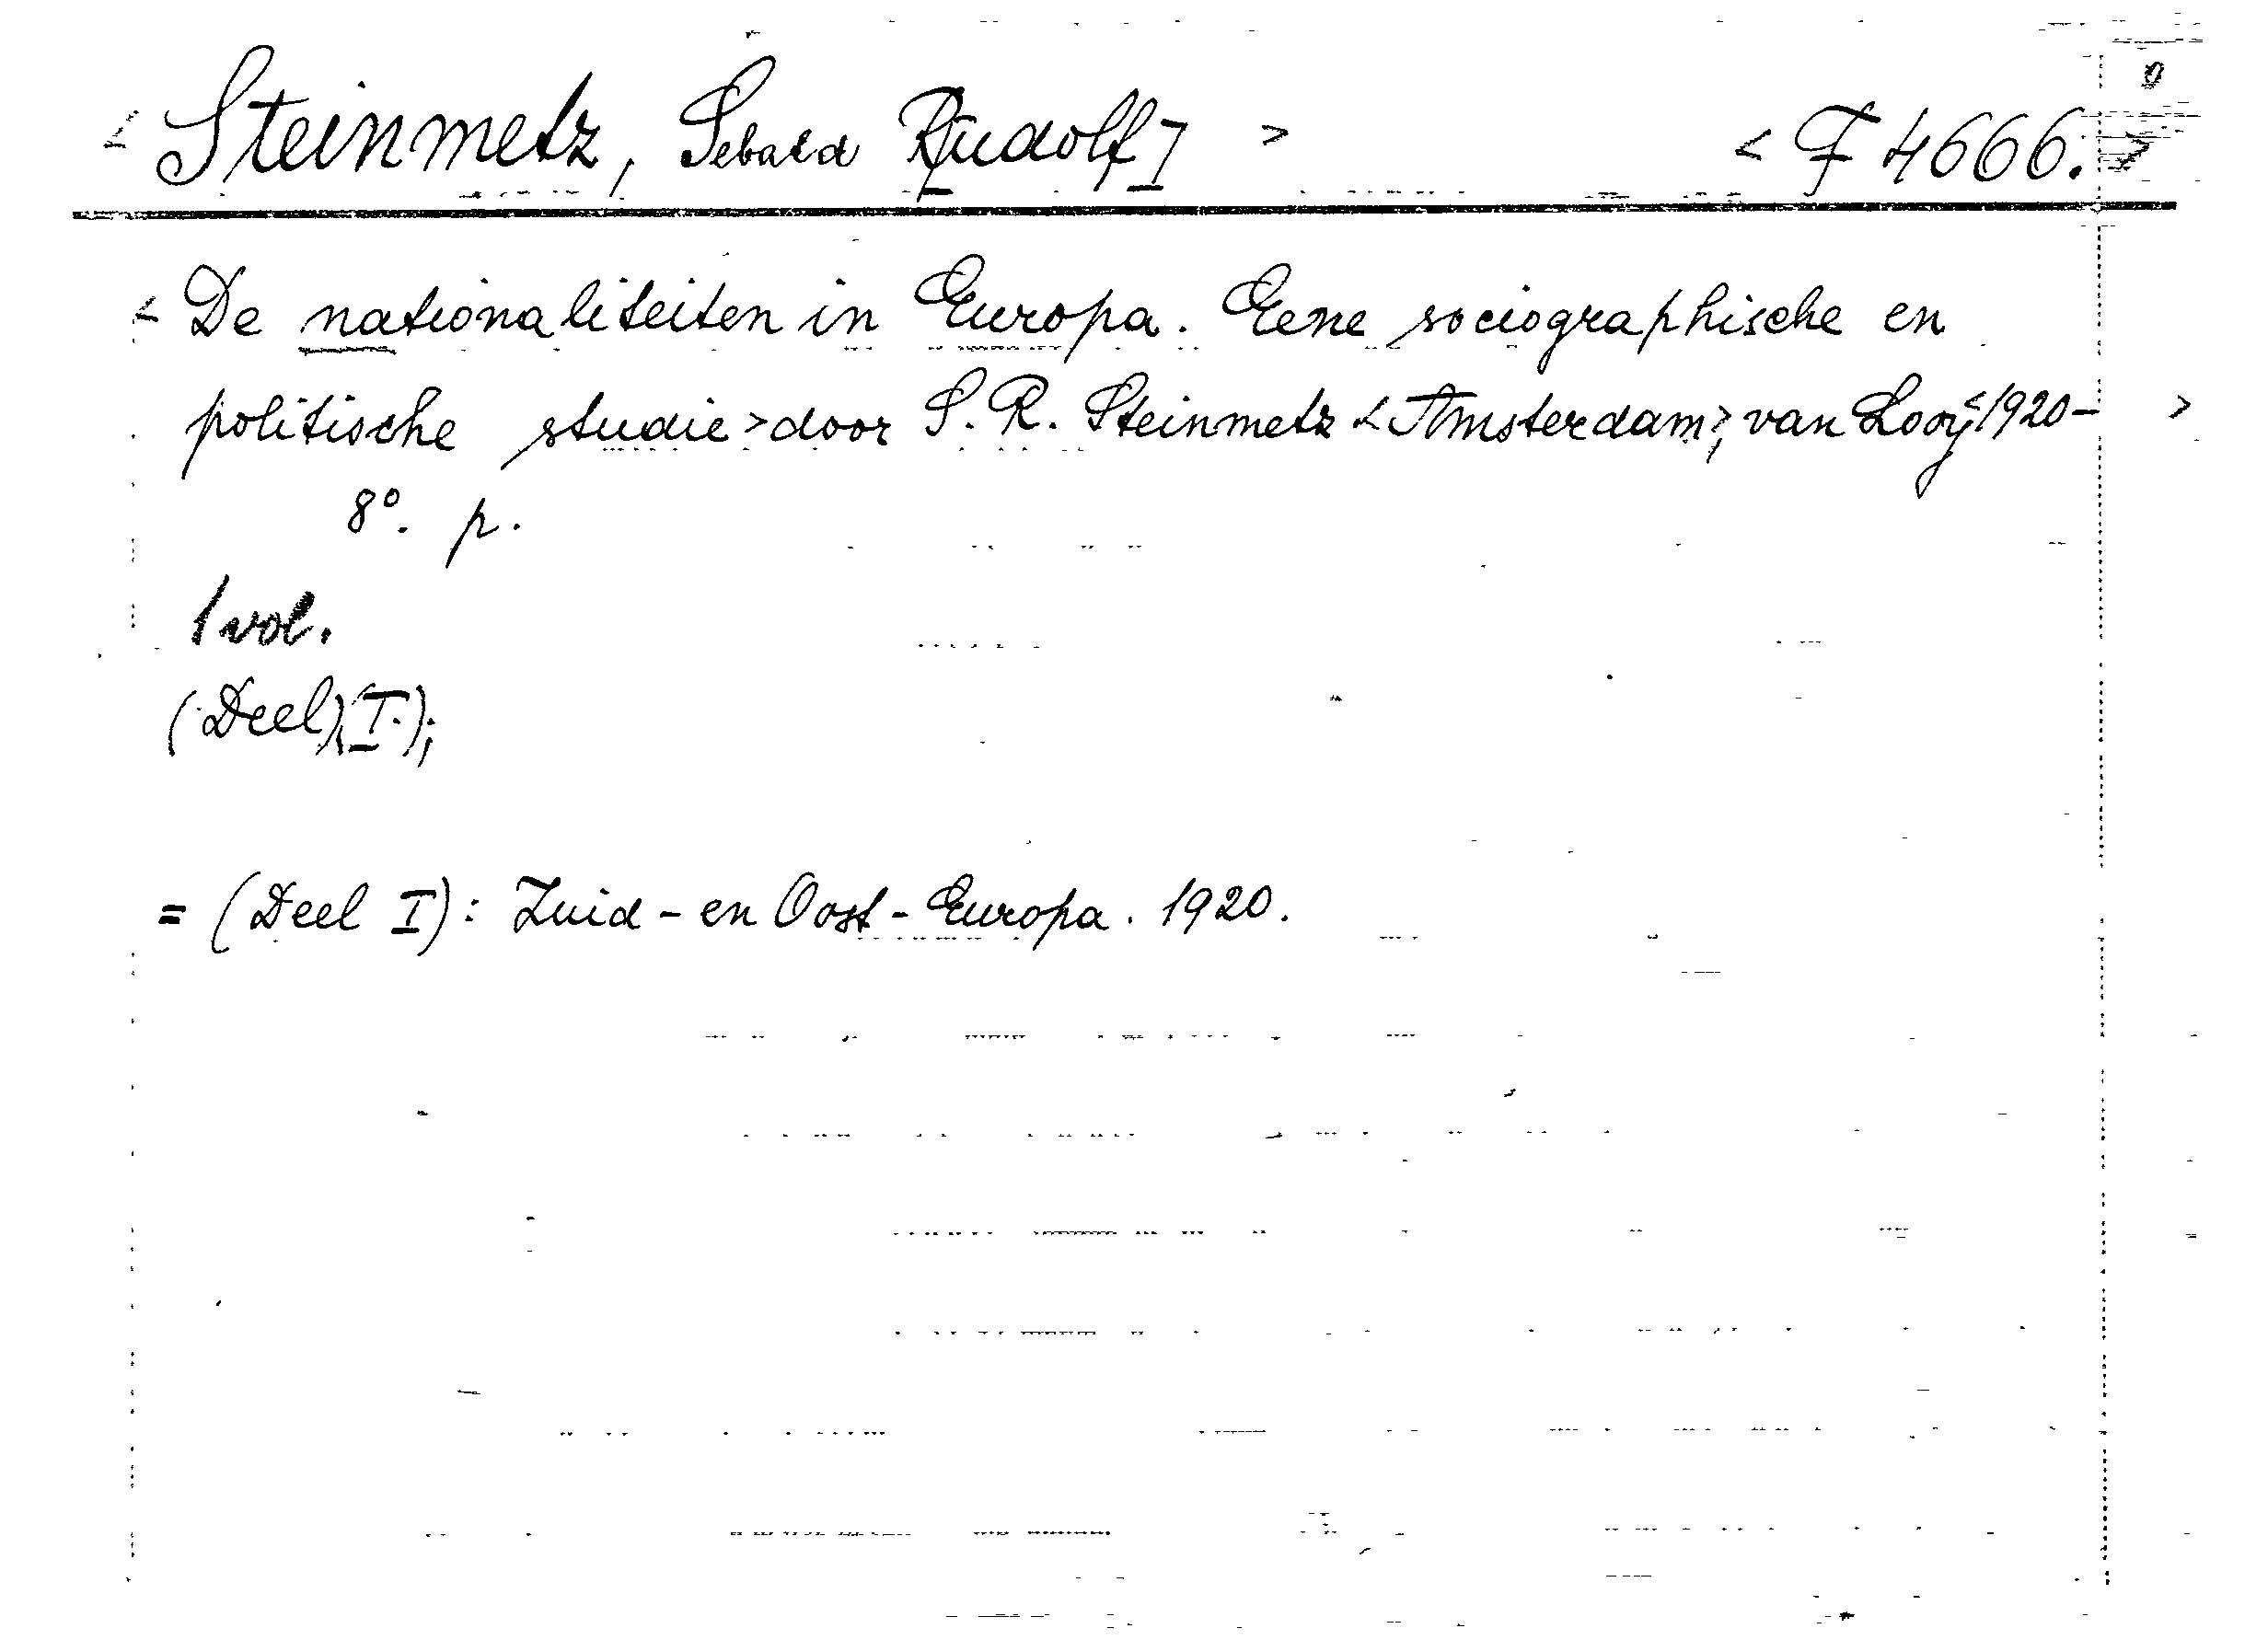 < Steinmetz, Sebald Rudolf] > < F 4666. >
< De nationaliteiten in Europa. Eene sociographische en
politische studie > door S. R. Steinmetz < Amsterdam >, van Looy < 1920 - >
8°. p.
1 vol.
(Deel) (I.);
= (Deel I): Zuid- en Oost-Europa. 1920.